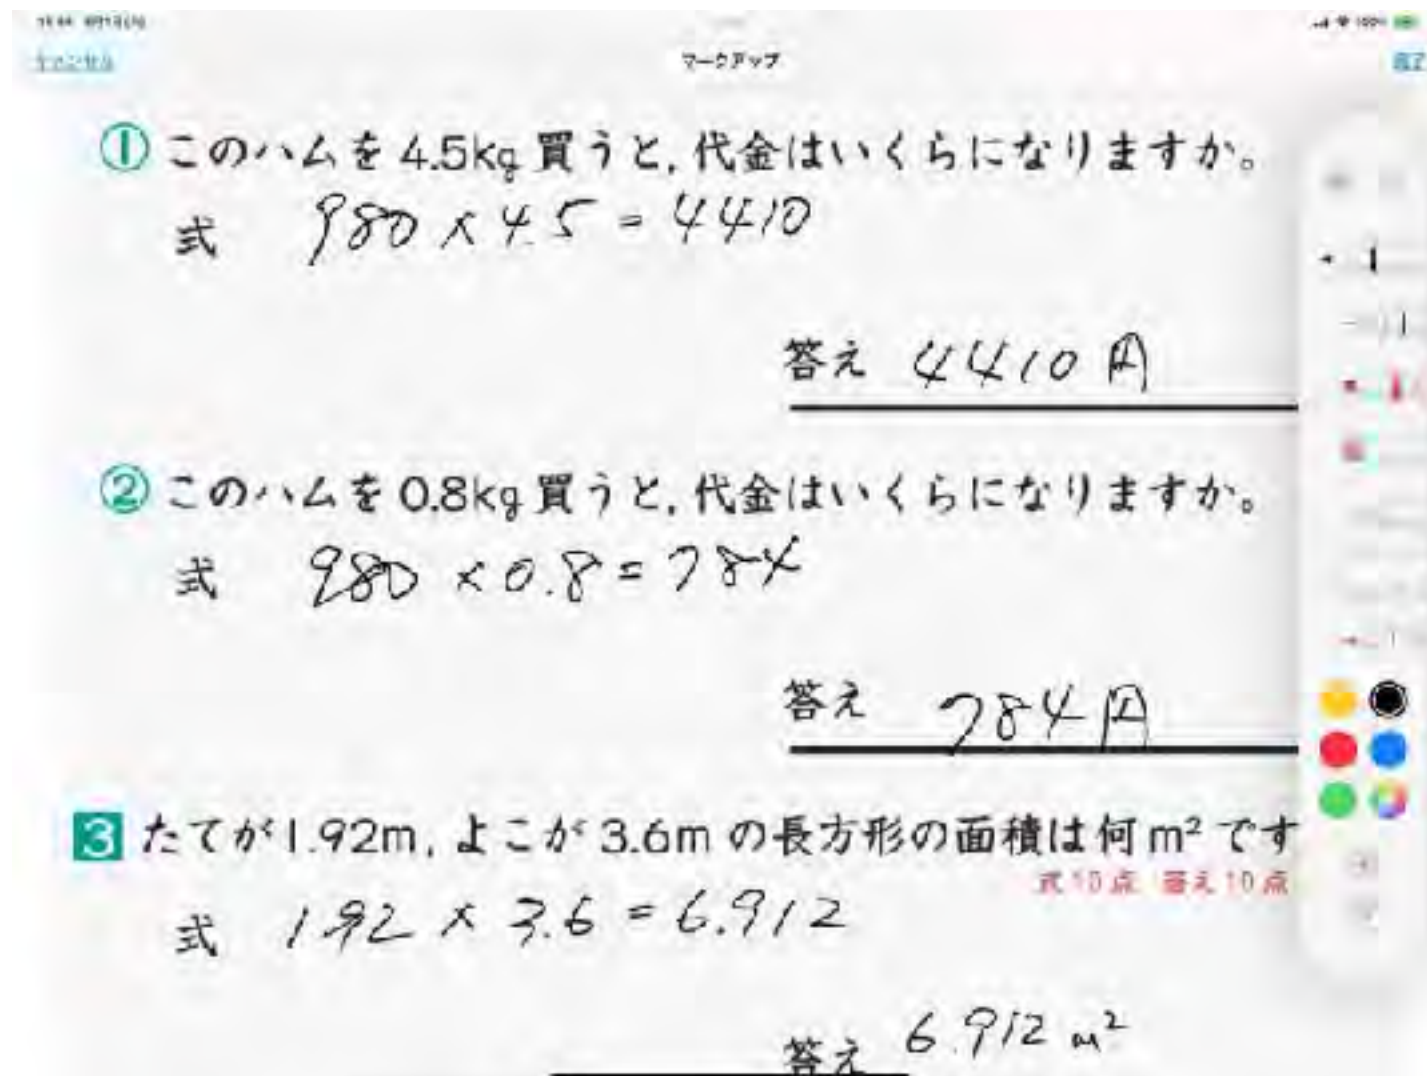 マークアップ
① このハムを 4.5kg 買うと, 代金はいくらになりますか。
式 980 × 4.5 = 4410
答え 4410 円
② このハムを 0.8kg 買うと, 代金はいくらになりますか。
式 980 × 0.8 = 784
答え 784 円
3 たてが 1.92m, よこが 3.6m の長方形の面積は何 m² です
式10点 答え10点
式 1.92 × 3.6 = 6.912
答え 6.912 m²